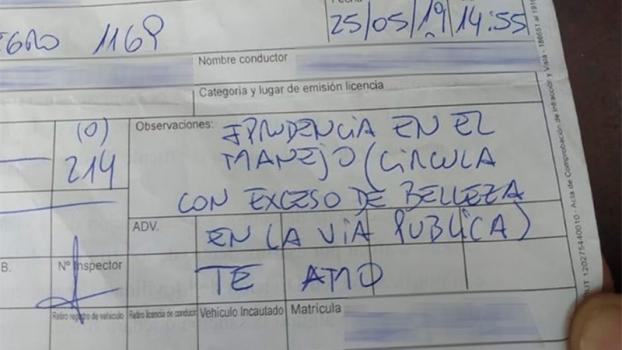 1169
25/05/19 14:55
Nombre conductor
Categoria y lugar de emisión licencia
(0)
214
Observaciones: IPRUDENCIA EN EL
MANEJO (CIRCULA
CON EXCESO DE BELLEZA
ADV. EN LA VIA PUBLICA)
B. Nº Inspector TE AMO
Retiro registro de vehículo Retiro licencia de conducir Vehículo Incautado Matricula
Acta de Comprobación de Infracción y Vista